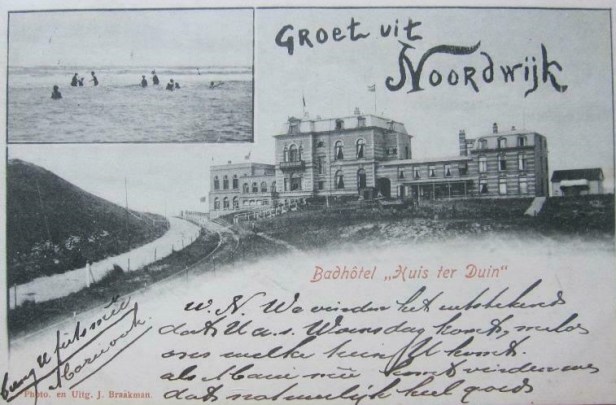 Groet uit
Noordwijk.
Badhôtel „Huis ter Duin"
W. N. We vinden het uitstekend
dat U a.s. Woensdag komt,
ons welke U komt.
als komt vinden we
dat natuurlijk heel goed
breng U fiets mee
Photo. en Uitg. J. Braakman.